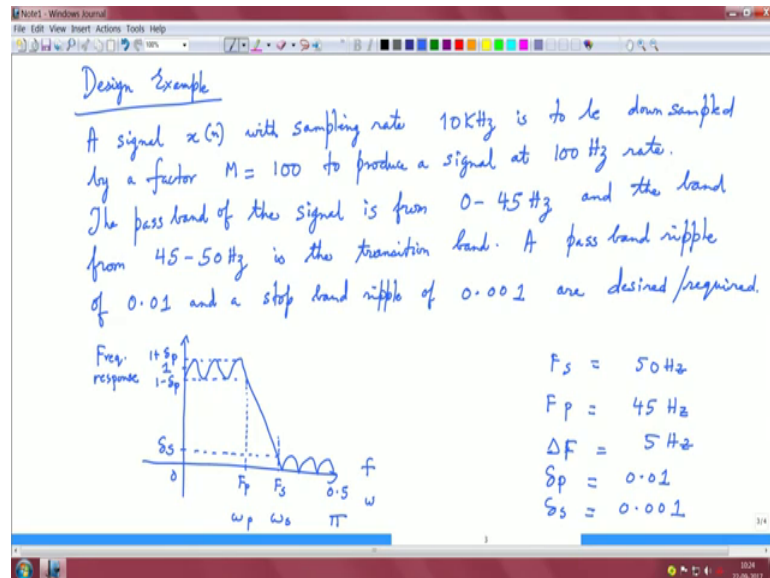 Note1 - Windows Journal
File Edit View Insert Actions Tools Help
100%
Design Example
A signal x(n) with sampling rate 10KHz is to be down sampled
by a factor M = 100 to produce a signal at 100 Hz rate.
The pass band of the signal is from 0-45Hz and the band
from 45-50Hz is the transition band. A pass band ripple
of 0.01 and a stop band ripple of 0.001 are desired/required.
Freq. response
1+δp
1
1-δp
δs
0 Fp Fs 0.5 f
ωp ωs π ω
Fs = 50Hz
Fp = 45 Hz
ΔF = 5 Hz
δp = 0.01
δs = 0.001
3/4
3
10:24
22-09-2017